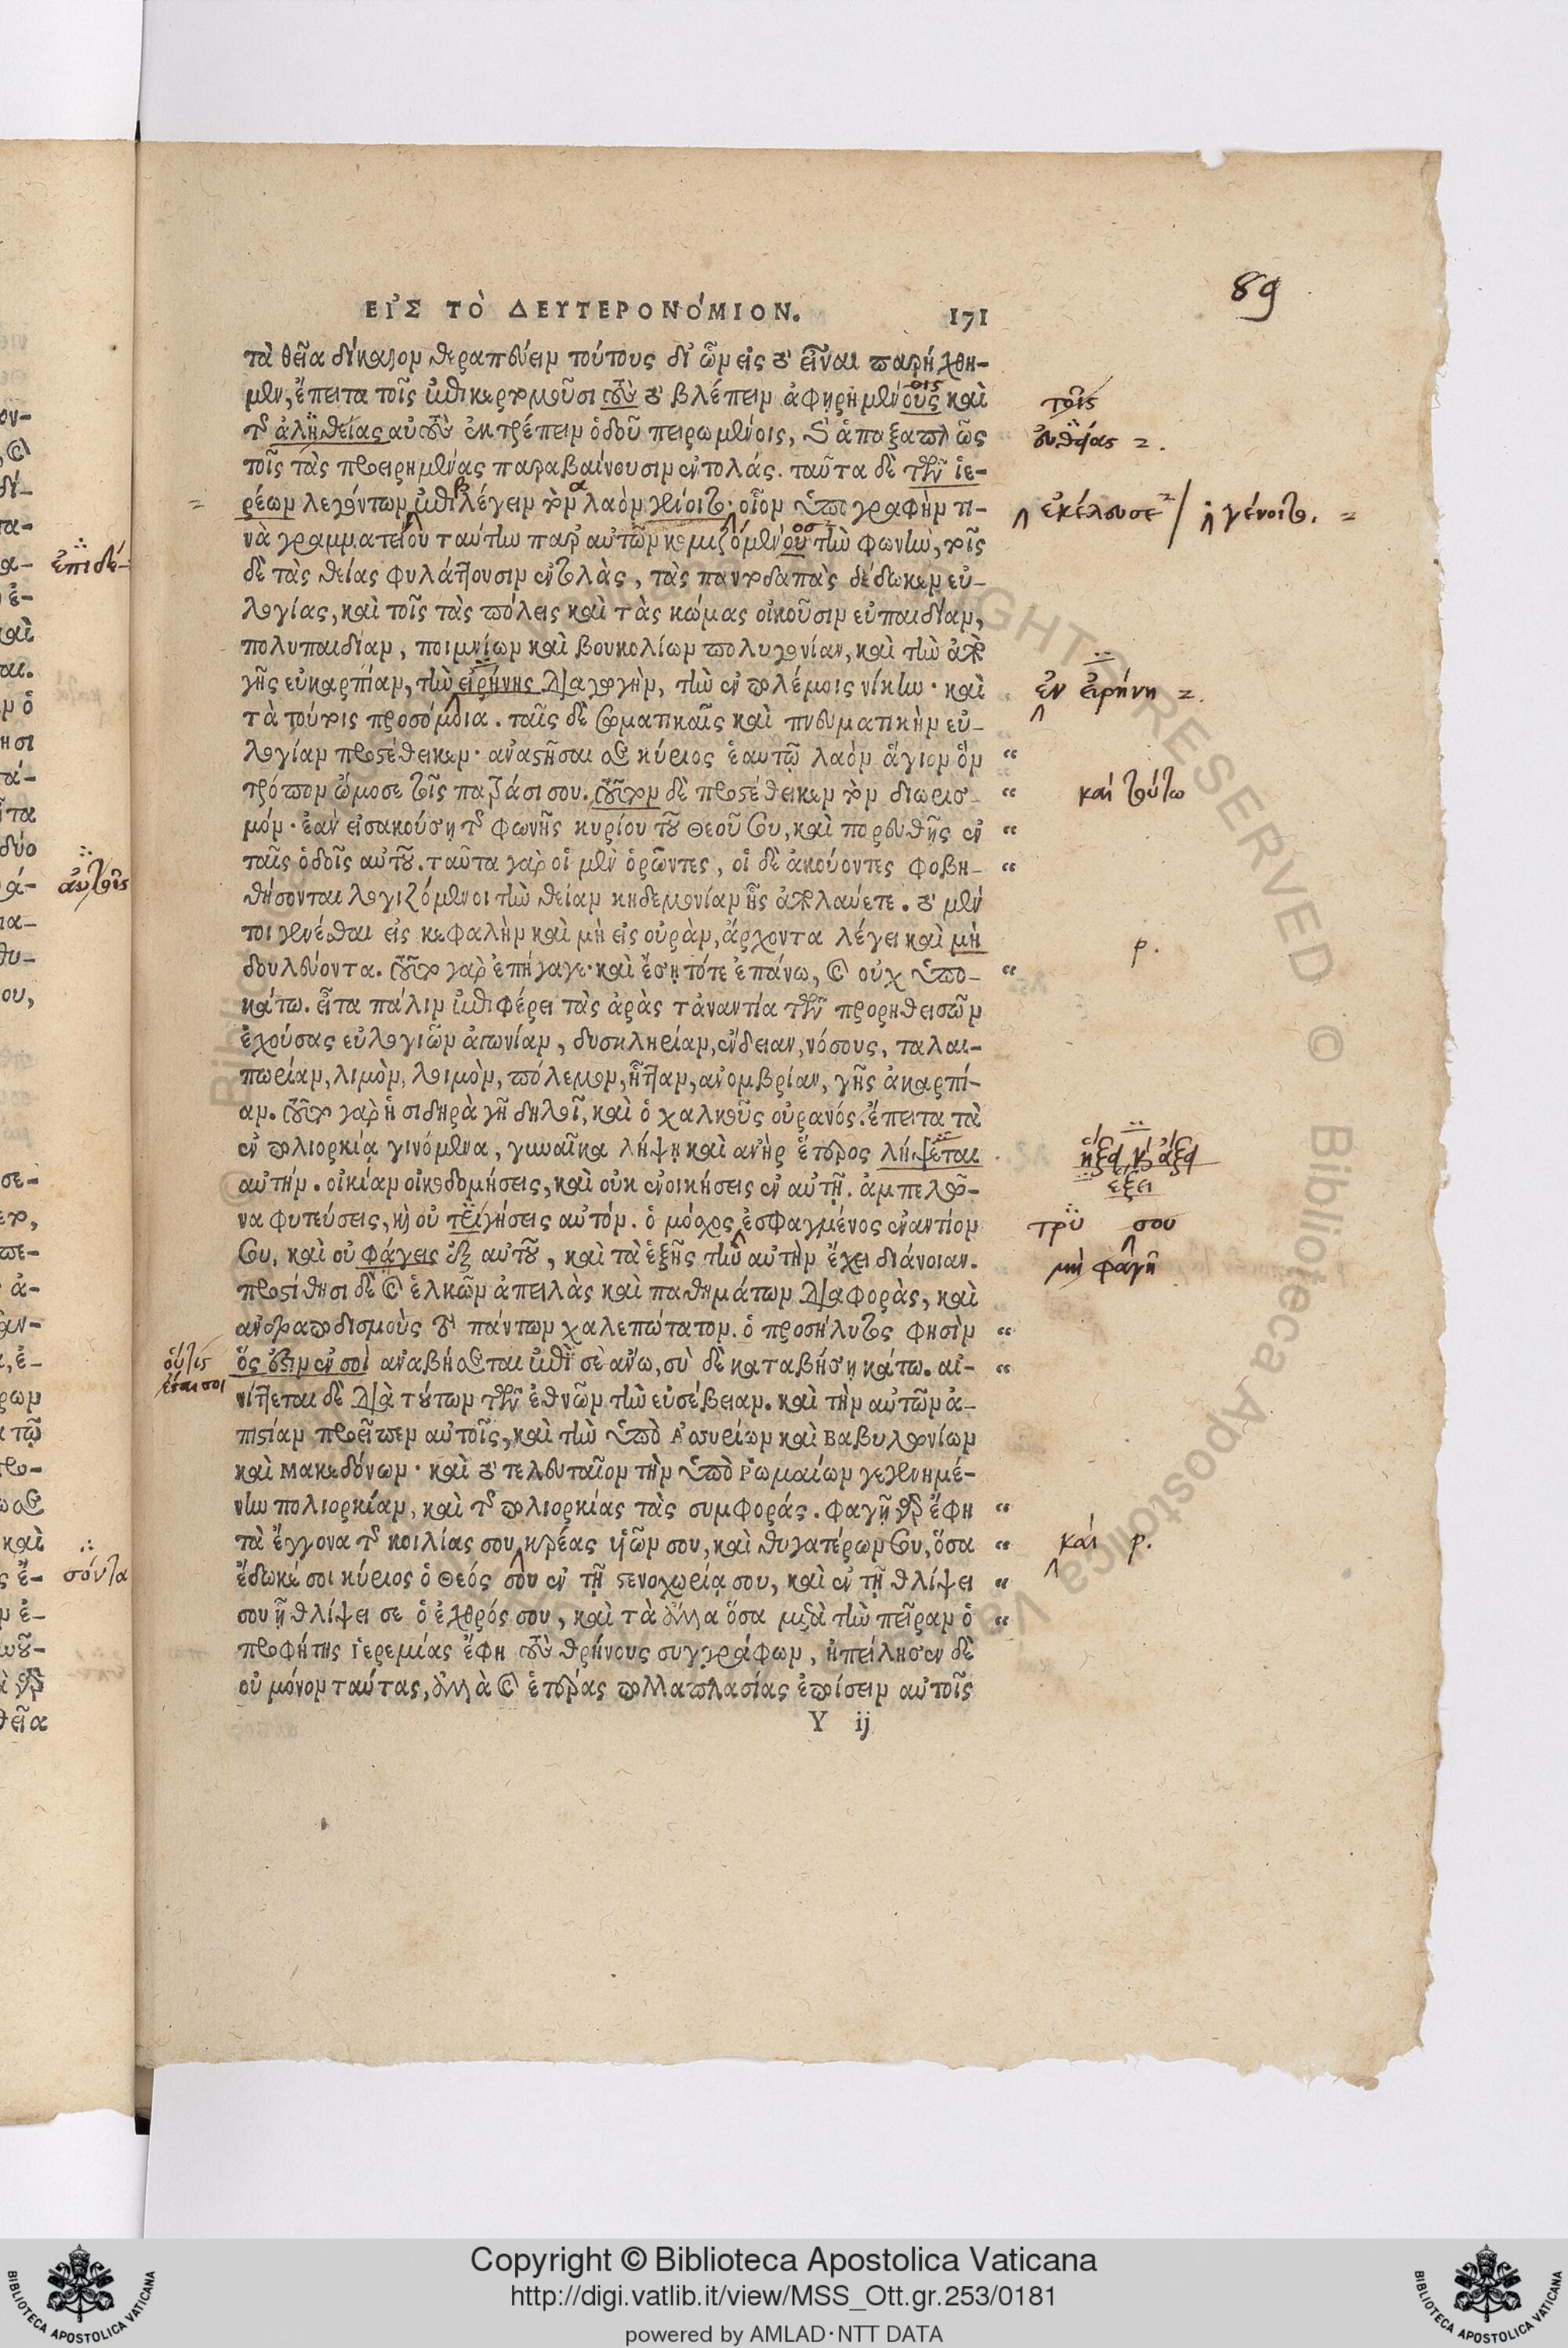 89
ΕΙ᾿Σ ΤΟ` ΔΕΥΤΕΡΟΝΟ´ΜΙΟΝ. 171
τὰ θεῖα δίκαιον θεραπεύειν τούτους δι' ὧν εἰς τὸ εἶναι παρήλθο-
μεν, ἔπειτα τοῖς ἐπικερτομοῦσι τοὺς τὸ βλέπειν ἀφῃρημένους καὶ
τῆς ἀληθείας αὐτοὺς ἐκτρέπειν ὁδοῦ πειρωμένοις, καὶ ἁπαξαπλῶς
τοῖς τὰς προειρημένας παραβαίνουσιν ἐντολάς. ταῦτα δὲ τῶν ἱε-
ρέων λεγόντων ἐπιλέγειν τὸν λαὸν γένοιτο· οἷον ὑπογραφὴν τι-
νὰ γραμματείου ταύτην παρ' αὐτῶν κομιζόμενου τὴν φωνὴν, τοῖς
δὲ τὰς θείας φυλάττουσιν ἐντολὰς, τὰς παντοδαπὰς δέδωκεν εὐ-
λογίας, καὶ τοῖς τὰς πόλεις καὶ τὰς κώμας οἰκοῦσιν εὐπαιδίαν,
πολυπαιδίαν, ποιμνίων καὶ βουκολίων πολυγονίαν, καὶ τὴν ἀπὸ
γῆς εὐκαρπίαν, τὴν εἰρήνης διαγωγὴν, τὴν ἐν πολέμοις νίκην· καὶ
τὰ τούτοις προσόμοια. ταῖς δὲ σωματικαῖς καὶ πνευματικὴν εὐ-
λογίαν προστέθεικεν· ἀναστῆσαι σε κύριος ἑαυτῷ λαὸν ἅγιον ὃν “
τρόπον ὤμοσε τοῖς πατράσι σου. τοῦτον δὲ προστέθεικεν τὸν διορισ- “
μόν· ἐὰν εἰσακούσῃ τῆς φωνῆς κυρίου τοῦ θεοῦ σου, καὶ πορευθῇς ἐν “
ταῖς ὁδοῖς αὐτοῦ. ταῦτα γὰρ οἱ μὲν ὁρῶντες, οἱ δὲ ἀκούοντες φοβη- “
θήσονται λογιζόμενοι τὴν θείαν κηδεμονίαν ἧς ἀπολαύετε. τὸ μέν
τοι γενέσθαι εἰς κεφαλὴν καὶ μὴ εἰς οὐρὰν, ἄρχοντα λέγει καὶ μὴ
δουλεύοντα. τοῦτο γὰρ ἐπήγαγε· καὶ ἔσῃ τότε ἐπάνω, καὶ οὐχ ὑπο- “
κάτω. εἶτα πάλιν ἐπιφέρει τὰς ἀρὰς τἀναντία τῶν προρηθεισῶν
ἐχούσας εὐλογιῶν ἀγωνίαν, δυσκληρίαν, ἔνδειαν, νόσους, ταλαι-
πωρίαν, λιμὸν, λοιμὸν, πόλεμον, ἧτταν, ἀνομβρίαν, γῆς ἀκαρπί-
αν. τοῦτο γὰρ ἡ σιδηρὰ γῆ δηλοῖ, καὶ ὁ χαλκοῦς οὐρανός. ἔπειτα τὰ
ἐν πολιορκίᾳ γινόμενα, γυναῖκα λήψῃ καὶ ἀνὴρ ἕτερος λήψεται
αὐτήν. οἰκίαν οἰκοδομήσεις, καὶ οὐκ ἐνοικήσεις ἐν αὐτῇ. ἀμπελῶ-
να φυτεύσεις, καὶ οὐ τειγήσεις αὐτόν. ὁ μόσχος ἐσφαγμένος ἐναντίον
σου, καὶ οὐ φάγεις ἐξ αὐτοῦ, καὶ τὰ ἑξῆς τὴν αὐτὴν ἔχει διάνοιαν.
προστίθησι δὲ καὶ ἑλκῶν ἀπειλὰς καὶ παθημάτων διαφορὰς, καὶ
ἀνδραποδισμοὺς τὸ πάντων χαλεπώτατον. ὁ προσήλυτος φησὶν “
ὅς ἐστιν ἐν σοὶ ἀναβήσεται ἐπὶ σὲ ἄνω, σὺ δὲ καταβήσῃ κάτω. αἰ- “
νίττεται δὲ διὰ τούτων τῶν ἐθνῶν τὴν εὐσέβειαν. καὶ τὴν αὐτῶν ἀ-
πιστίαν προεῖπεν αὐτοῖς, καὶ τὴν ὑπὸ Ἀσσυρίων καὶ Βαβυλωνίων
καὶ Μακεδόνων· καὶ τὸ τελευταῖον τὴν ὑπὸ Ῥωμαίων γεγενημέ-
νην πολιορκίαν, καὶ τῆς πολιορκίας τὰς συμφοράς. φαγῇ γὰρ ἔφη “
τὰ ἔγγονα τῆς κοιλίας σου, κρέας υἱῶν σου, καὶ θυγατέρων σου, ὅσα “
ἔδωκε σοι κύριος ὁ θεός σου ἐν τῇ στενοχωρίᾳ σου, καὶ ἐν τῇ θλίψει “
σου ᾗ θλίψει σε ὁ ἐχθρός σου, καὶ τὰ ἄλλα ὅσα μετὰ τὴν πεῖραν ὁ “
προφήτης Ἱερεμίας ἔφη τοὺς θρήνους συγγράφων, ἠπείλησεν δὲ
οὐ μόνον ταύτας, ἀλλὰ καὶ ἑτέρας πολλαπλασίας ἐποίσειν αὐτοῖς
Y ij
τοῖς
εὐθείας
ἐκέλευσε / γένοιτο.
ἐν εἰρήνη
καὶ τούτω
p.
ἕξει
τρυ σου
μὴ φάγη
οὗτις
ἐσαισοι
καὶ p.
ἐπιδέ-
αὐτοῖς
σόντα
Copyright © Biblioteca Apostolica Vaticana
http://digi.vatlib.it/view/MSS_Ott.gr.253/0181
powered by AMLAD·NTT DATA
BIBLIOTECA APOSTOLICA VATICANA
BIBLIOTECA APOSTOLICA VATICANA